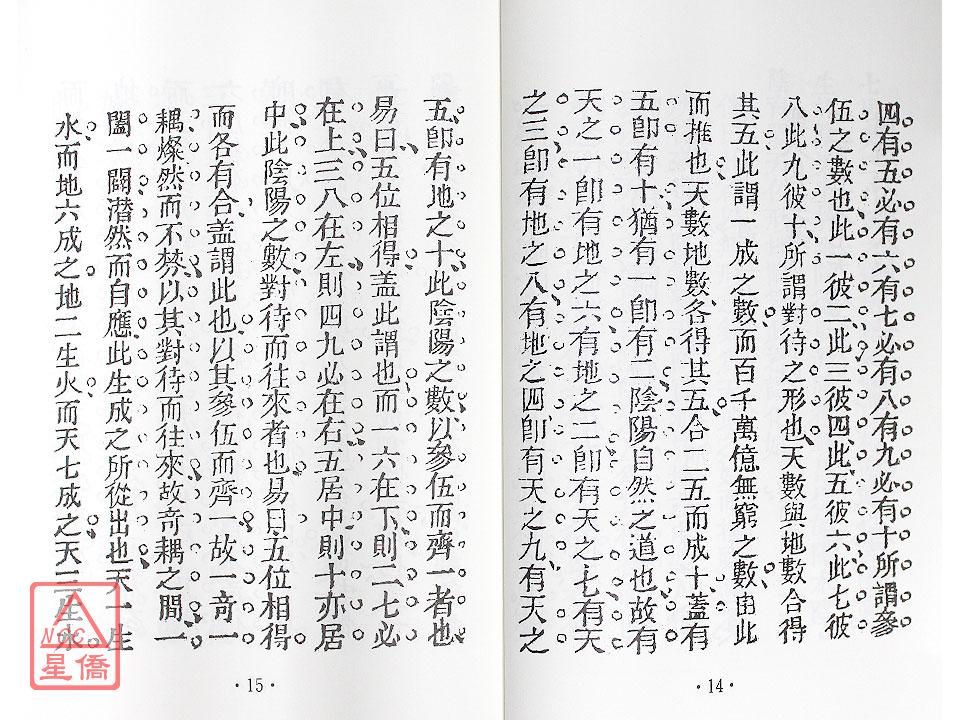 四有五必有六有七必有八有九必有十所謂參
伍之數也此一彼二此三彼四此五彼六此七彼
八此九彼十所謂對待之形也天數與地數合得
其五此謂一成之數而百千萬億無窮之數由此
而推也天數地數各得其五合二五而成十蓋有
五卽有十猶有一卽有二陰陽自然之道也故有
天之一卽有地之六有地之二卽有天之七有天
之三卽有地之八有地之四卽有天之九有天之
・14・
五卽有地之十此陰陽之數以參伍而齊一者也
易曰五位相得蓋此謂也而一六在下則二七必
在上三八在左則四九必在右五居中則十亦居
中此陰陽之數對待而往來者也易曰五位相得
而各有合蓋謂此也以其參伍而齊一故一奇一
耦燦然而不棼以其對待而往來故奇耦之間一
闔一闢潛然而自應此生成之所從出也天一生
水而地六成之地二生火而天七成之天三生木
・15・
NCC
星僑